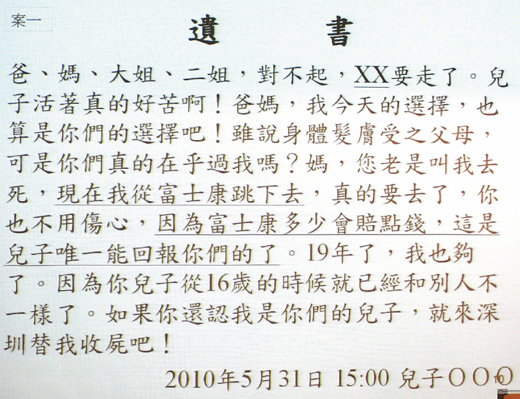 案一
遺書
爸、媽、大姐、二姐，對不起，XX要走了。兒
子活著真的好苦啊！爸媽，我今天的選擇，也
算是你們的選擇吧！雖說身體髮膚受之父母，
可是你們真的在乎過我嗎？媽，您老是叫我去
死，現在我從富士康跳下去，真的要去了，你
也不用傷心，因為富士康多少會賠點錢，這是
兒子唯一能回報你們的了。19年了，我也夠
了。因為你兒子從16歲的時候就已經和別人不
一樣了。如果你還認我是你們的兒子，就來深
圳替我收屍吧！
2010年5月31日 15:00 兒子○○○